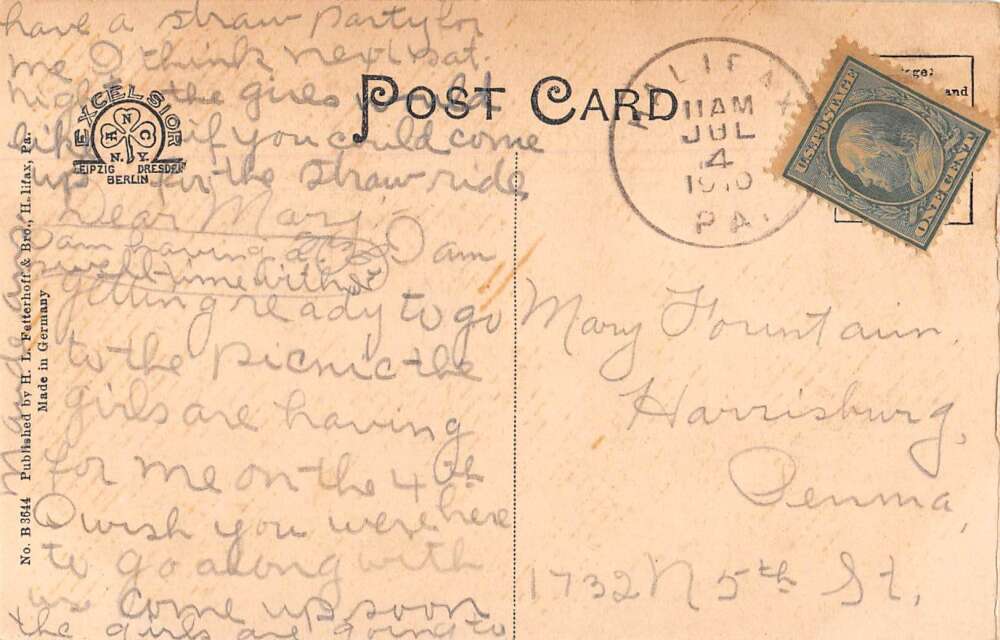 have a straw party for
me I think next sat.
night the girls would
like it if you could come
up for the straw-ride
Dear Mary,
I am having a
swell time with
I am
getting ready to go
to the picnic the
girls are having
for me on the 4th
I wish you were here
to go along with
us come up soon
the girls are going to
POST CARD
EXCELSIOR
H N C
N. Y.
LEIPZIG DRESDEN
BERLIN
No. B 3644 Published by H. L. Fetterhoff & Bro., Halifax, Pa.
Made in Germany
HALIFAX
11 AM
JUL
4
1910
PA.
U.S. POSTAGE
ONE CENT
and
Mary Fountain
Harrisburg,
Penna,
1732 N 5th St,